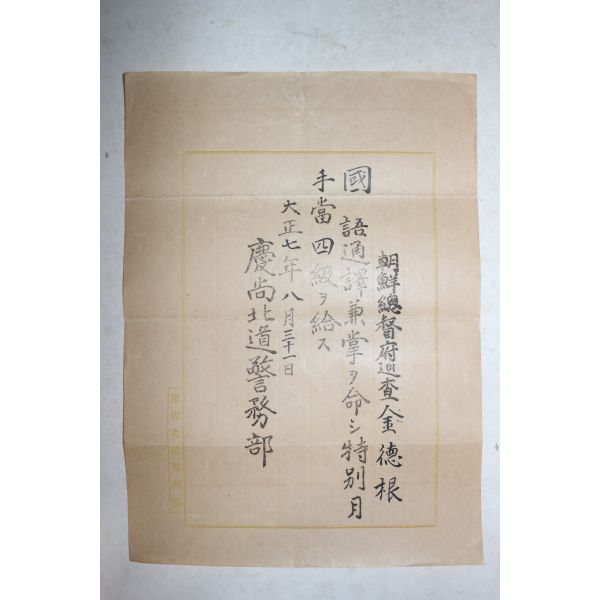 朝鮮總督府巡査金德根
國語通譯兼掌ヲ命シ特別月
手當四級ヲ給ス
大正七年八月三十一日
慶尚北道警務部
慶尚北道警務部